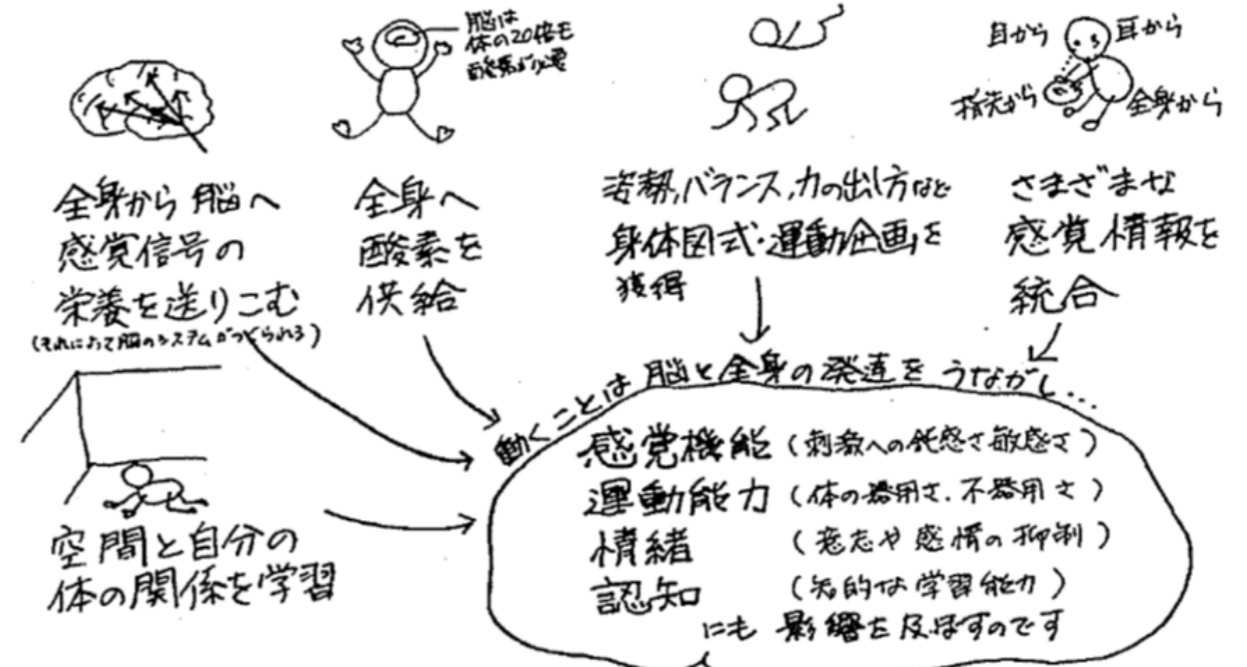 脳は
体の20倍も
酸素が必要
目から
耳から
指先から
全身から
全身から脳へ
感覚信号の
栄養を送りこむ
(それによって脳のシステムがつくられる)
全身へ
酸素を
供給
姿勢,バランス,力の出し方など
身体図式・運動企画を
獲得
さまざまな
感覚情報を
統合
空間と自分の
体の関係を学習
働くことは脳と全身の発達をうながし…
感覚機能(刺激への鈍感さ敏感さ)
運動能力(体の器用さ、不器用さ)
情緒(意志や感情の抑制)
認知(知的な学習能力)
にも影響を及ぼすのです